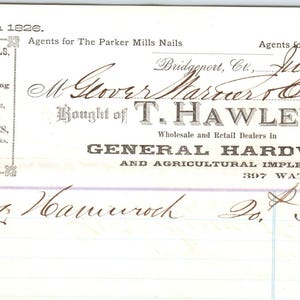 1826.
Agents for The Parker Mills Nails
Agents fo
Bridgeport, Ct.,
M Glover Warner &
Bought of T. HAWLE
Wholesale and Retail Dealers in
GENERAL HARDW
AND AGRICULTURAL IMPLE
397 WAT
Hammock Do.